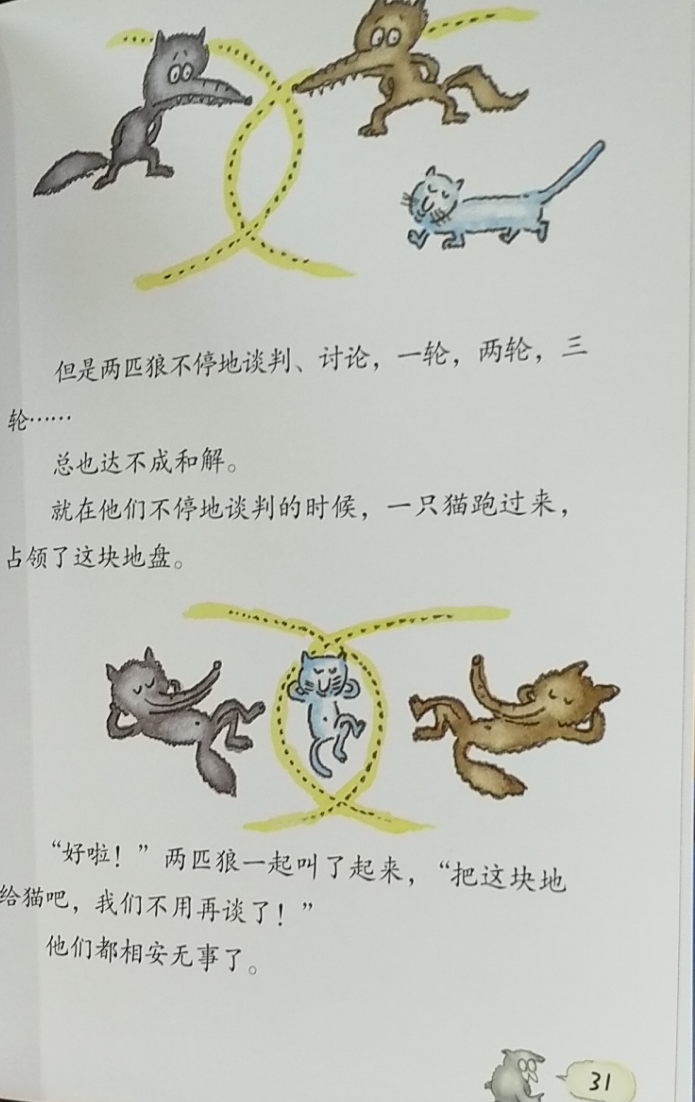 但是两匹狼不停地谈判、讨论，一轮，两轮，三
轮……
总也达不成和解。
就在他们不停地谈判的时候，一只猫跑过来，
占领了这块地盘。
“好啦！”两匹狼一起叫了起来，“把这块地
给猫吧，我们不用再谈了！”
他们都相安无事了。
31